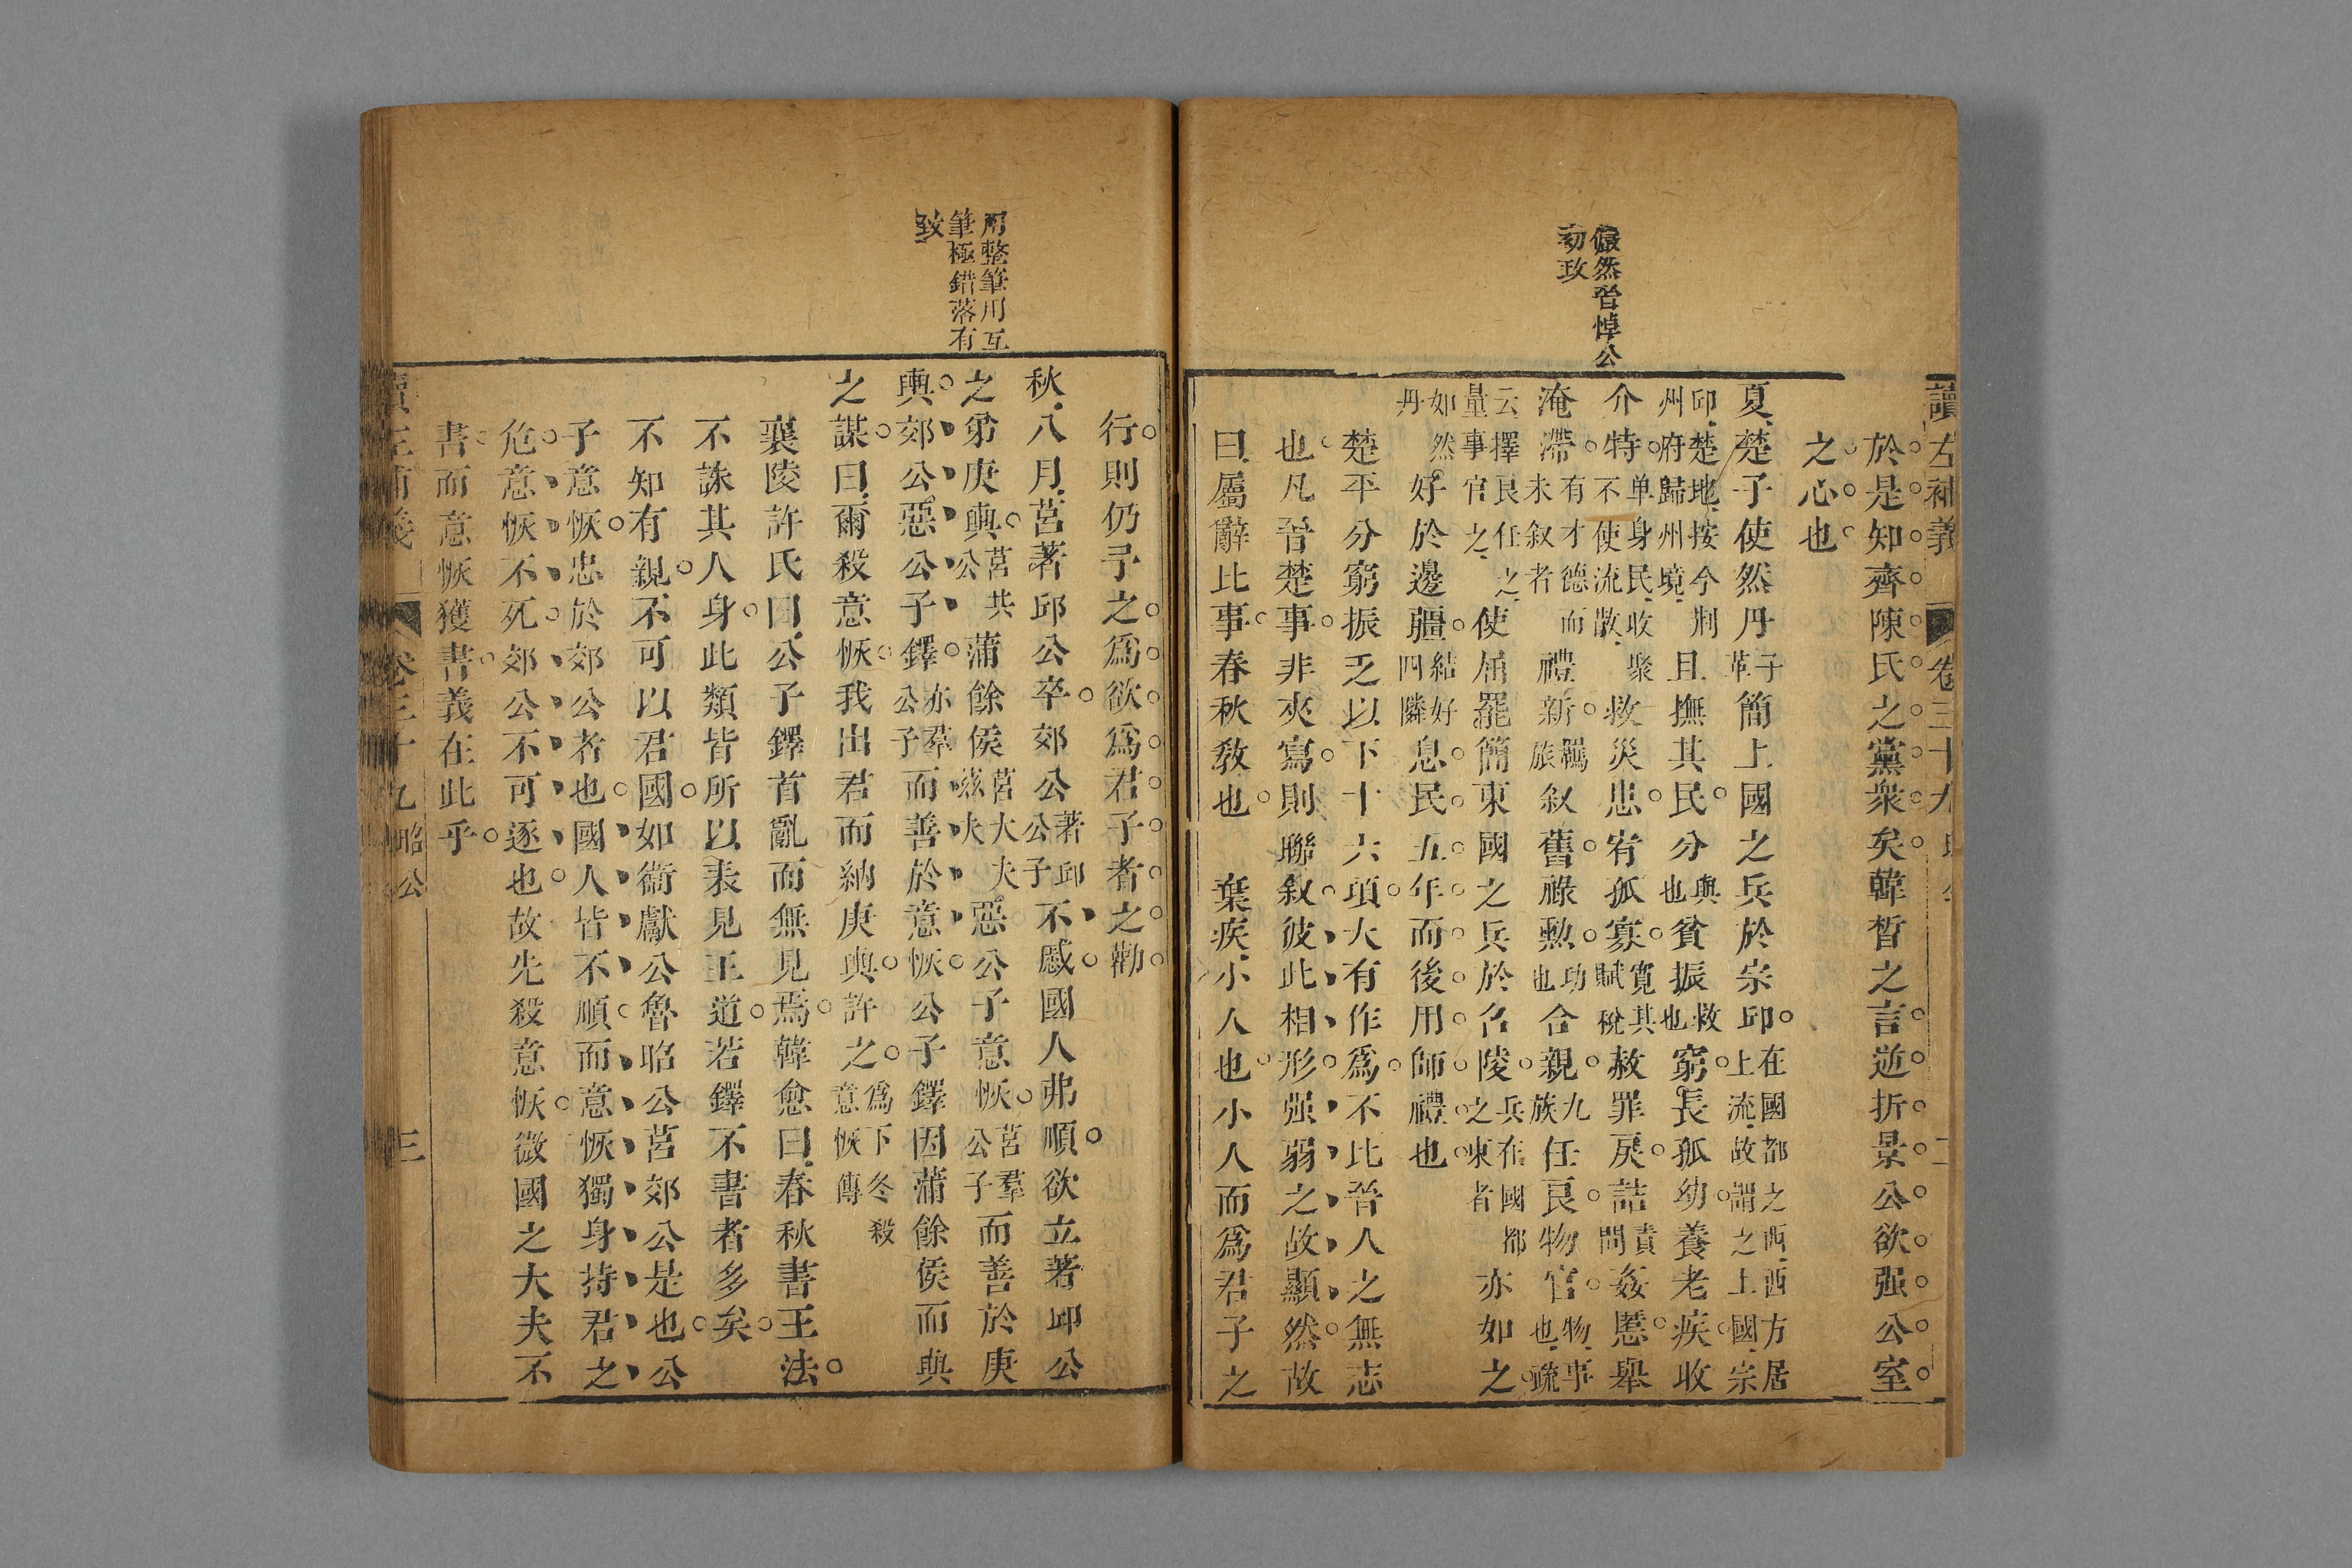 讀左補義
卷三十九
儼然晉悼公
初政
於是知齊陳氏之黨衆矣韓皙之言逆折景公欲强公室
之心也
夏楚子使然丹子革簡上國之兵於宗邱在國都之西西方居上流故謂之上國宗
邱楚地按今荆州府歸州境且撫其民分與也貧振救也窮長孤幼養老疾收
介特单身民收聚不使流散救災患宥孤寡寛其賦稅赦罪戾詰責問姦慝舉
淹滯有才德而未叙者禮新羈旅叙舊祿勲功也合親九族任良物官物事也疏
云擇良任之量事官之使屈罷簡東國之兵於召陵兵在國都之東者亦如之
如然丹好於邊疆結好四隣息民五年而後用師禮也
楚平分窮振乏以下十六項大有作爲不比晉人之無志
也凡晉楚事非夾寫則聯叙彼此相形强弱之故顯然故
曰屬辭比事春秋教也 棄疾小人也小人而爲君子之
用整筆用互
筆極錯落有
致
行則仍予之爲欲爲君子者之勸
秋八月莒著邱公卒郊公著邱公子不慼國人弗順欲立著邱公
之弟庚輿莒共公蒲餘侯莒大夫茲夫惡公子意恢莒羣公子而善於庚
輿郊公惡公子鐸亦羣公子而善於意恢公子鐸因蒲餘侯而與
之謀曰爾殺意恢我出君而納庚輿許之爲下冬殺意恢傳
襄陵許氏曰公子鐸首亂而無見焉韓愈曰春秋書王法
不誅其人身此類皆所以表見王道若鐸不書者多矣
不知有親不可以君國如衞獻公魯昭公莒郊公是也公
子意恢忠於郊公者也國人皆不順而意恢獨身持君之
危意恢不死郊公不可逐也故先殺意恢微國之大夫不
書而意恢獲書義在此乎
卷三十九昭公
三